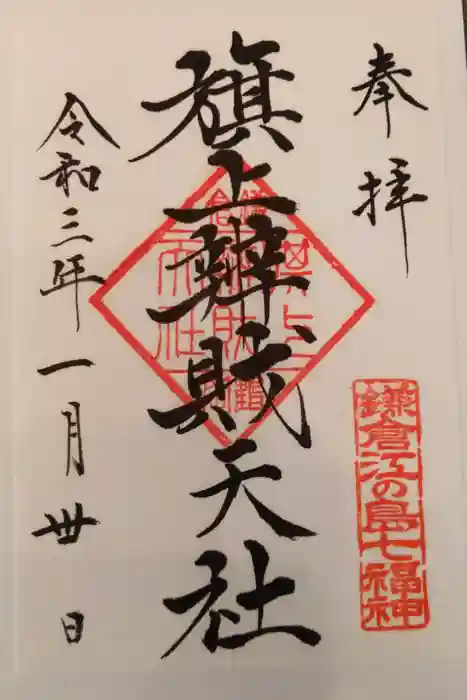 奉拝
鎌倉江の島七福神
旗上辨財天社
令和三年一月卅日